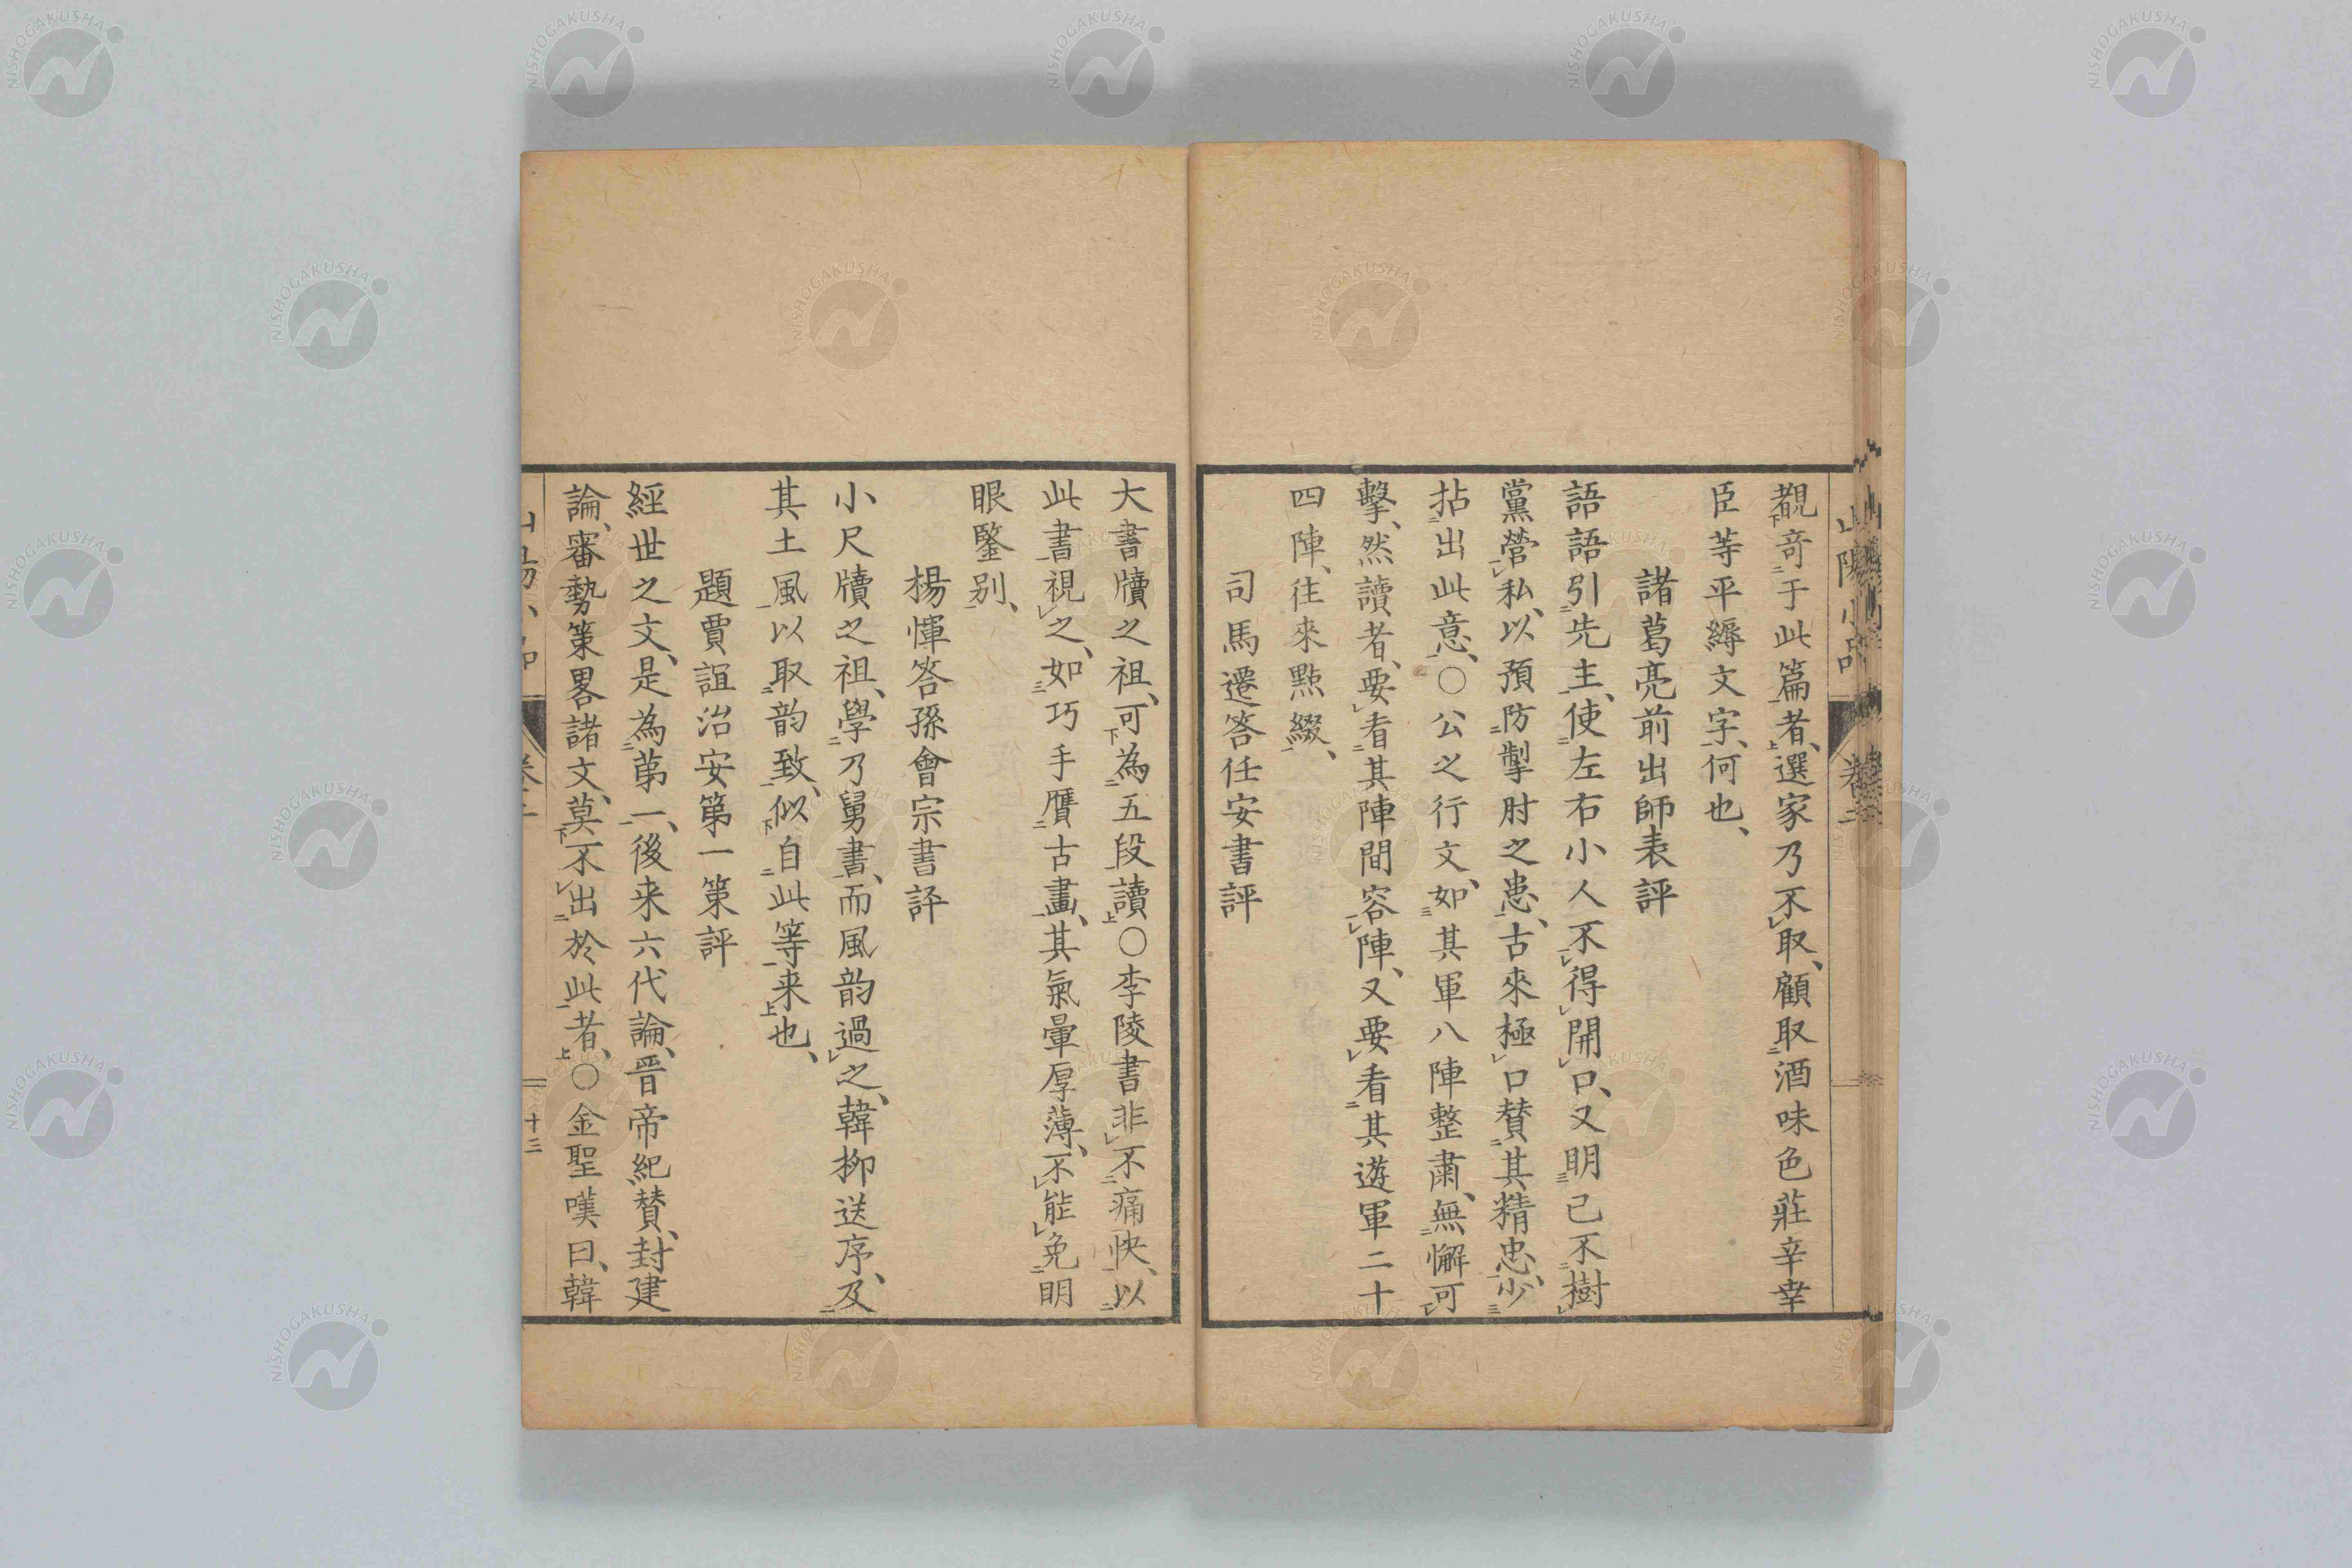 覩奇于此篇者、選家乃不取、顧取酒味色莊辛幸
臣等平縟文字、何也、
諸葛亮前出師表評
語語引先主、使左右小人不得開口、又明己不樹
黨營私、以預防掣肘之患、古來極口賛其精忠、少
拈出此意、○公之行文、如其軍八陣整肅、無懈可
擊、然讀者、要看其陣間容陣、又要看其遊軍二十
四陣、往來點綴、
司馬遷答任安書評
大書牘之祖、可為五段讀○李陵書非不痛快、以
此書視之、如巧手贋古畫、其氣暈厚薄、不能免明
眼鑒别、
楊惲答孫會宗書評
小尺牘之祖、學乃舅書、而風韵過之、韓柳送序、及
其土風以取韵致、似自此等来也、
題賈誼治安第一策評
經世之文、是為苐一、後来六代論、晋帝紀賛、封建
論、審勢策畧諸文、莫不出於此者、○金聖嘆曰、韓
山陽小品
卷二
十三
NISHOGAKUSHA